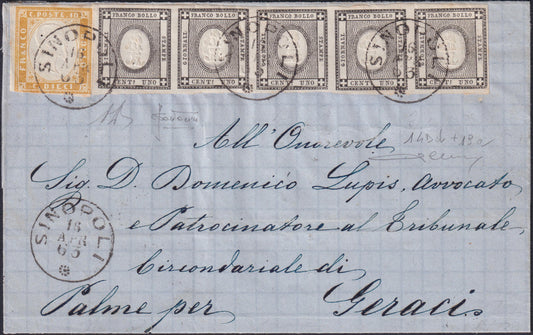 C. POSTE IT.
FRANCO
C. DIECI
FRANCO BOLLO
GIORNALI
STAMPE
CENT. UNO
FRANCO BOLLO
GIORNALI
STAMPE
CENT. UNO
FRANCO BOLLO
GIORNALI
STAMPE
CENT. UNO
FRANCO BOLLO
GIORNALI
STAMPE
CENT. UNO
FRANCO BOLLO
GIORNALI
STAMPE
CENT. UNO
SINOPOLI
16
APR
63
SINOPOLI
SINOPOLI
16
APR
63
All' Onorevole
Sig. D. Domenico Lupis, Avvocato
e Patrocinatore al Tribunale
Circondariale di
Palme per Geraci
SINOPOLI
16
APR
63